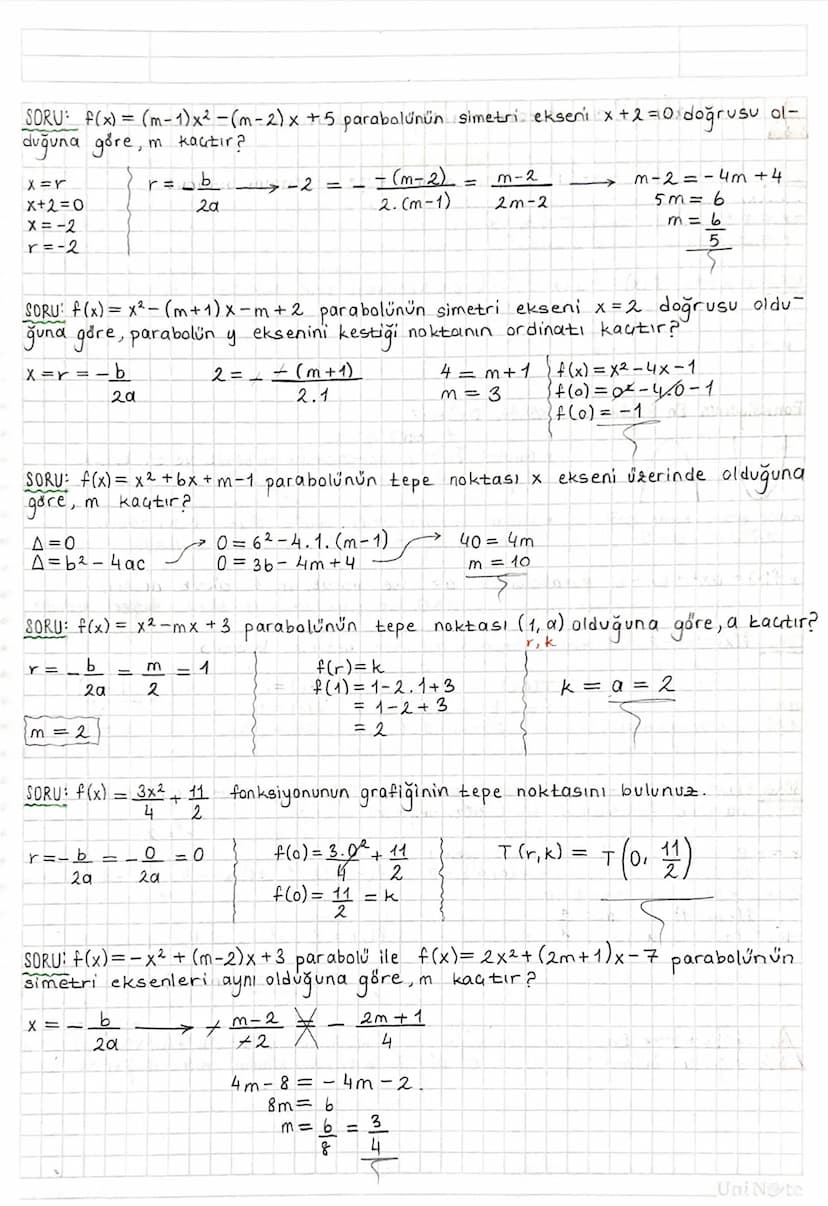 SORU: f(x) = (m-1)x² - (m-2)x + 5 parabolünün simetri ekseni x+2=0 doğrusu ol-
duğuna göre, m kaçtır?
x=r
x+2=0
x=-2
r=-2
r = -b/2a → -2 = - -(m-2)/2.(m-1) = m-2/2m-2 → m-2 = -4m+4
5m = 6
m = 6/5
SORU: f(x) = x² - (m+1)x - m + 2 parabolünün simetri ekseni x=2 doğrusu oldu-
ğuna göre, parabolün y eksenini kestiği noktanın ordinatı kaçtır?
x = r = -b/2a
2 = - -(m+1)/2.1
4 = m+1
m = 3
f(x) = x² - 4x - 1
f(0) = 0² - 4.0 - 1
f(0) = -1
SORU: f(x) = x² + 6x + m-1 parabolünün tepe noktası x ekseni üzerinde olduğuna
göre, m kaçtır?
Δ=0
Δ=b² - 4ac
0 = 6² - 4.1.(m-1)
0 = 36 - 4m + 4
40 = 4m
m = 10
SORU: f(x) = x² - mx + 3 parabolünün tepe noktası (1, a) olduğuna göre, a kaçtır?
r, k
r = -b/2a = m/2 = 1
m = 2
f(r) = k
f(1) = 1-2.1+3
= 1-2+3
= 2
k = a = 2
SORU: f(x) = 3x²/4 + 11/2 fonksiyonunun grafiğinin tepe noktasını bulunuz.
r = -b/2a = -0/2a = 0
f(0) = 3.0²/4 + 11/2
f(0) = 11/2 = k
T(r,k) = T(0, 11/2)
SORU: f(x) = -x² + (m-2)x + 3 parabolü ile f(x) = 2x² + (2m+1)x - 7 parabolünün
simetri eksenleri aynı olduğuna göre, m kaçtır?
x = -b/2a → - m-2/-2 = - 2m+1/4
4m - 8 = -4m - 2.
8m = 6
m = 6/8 = 3/4
UniNote